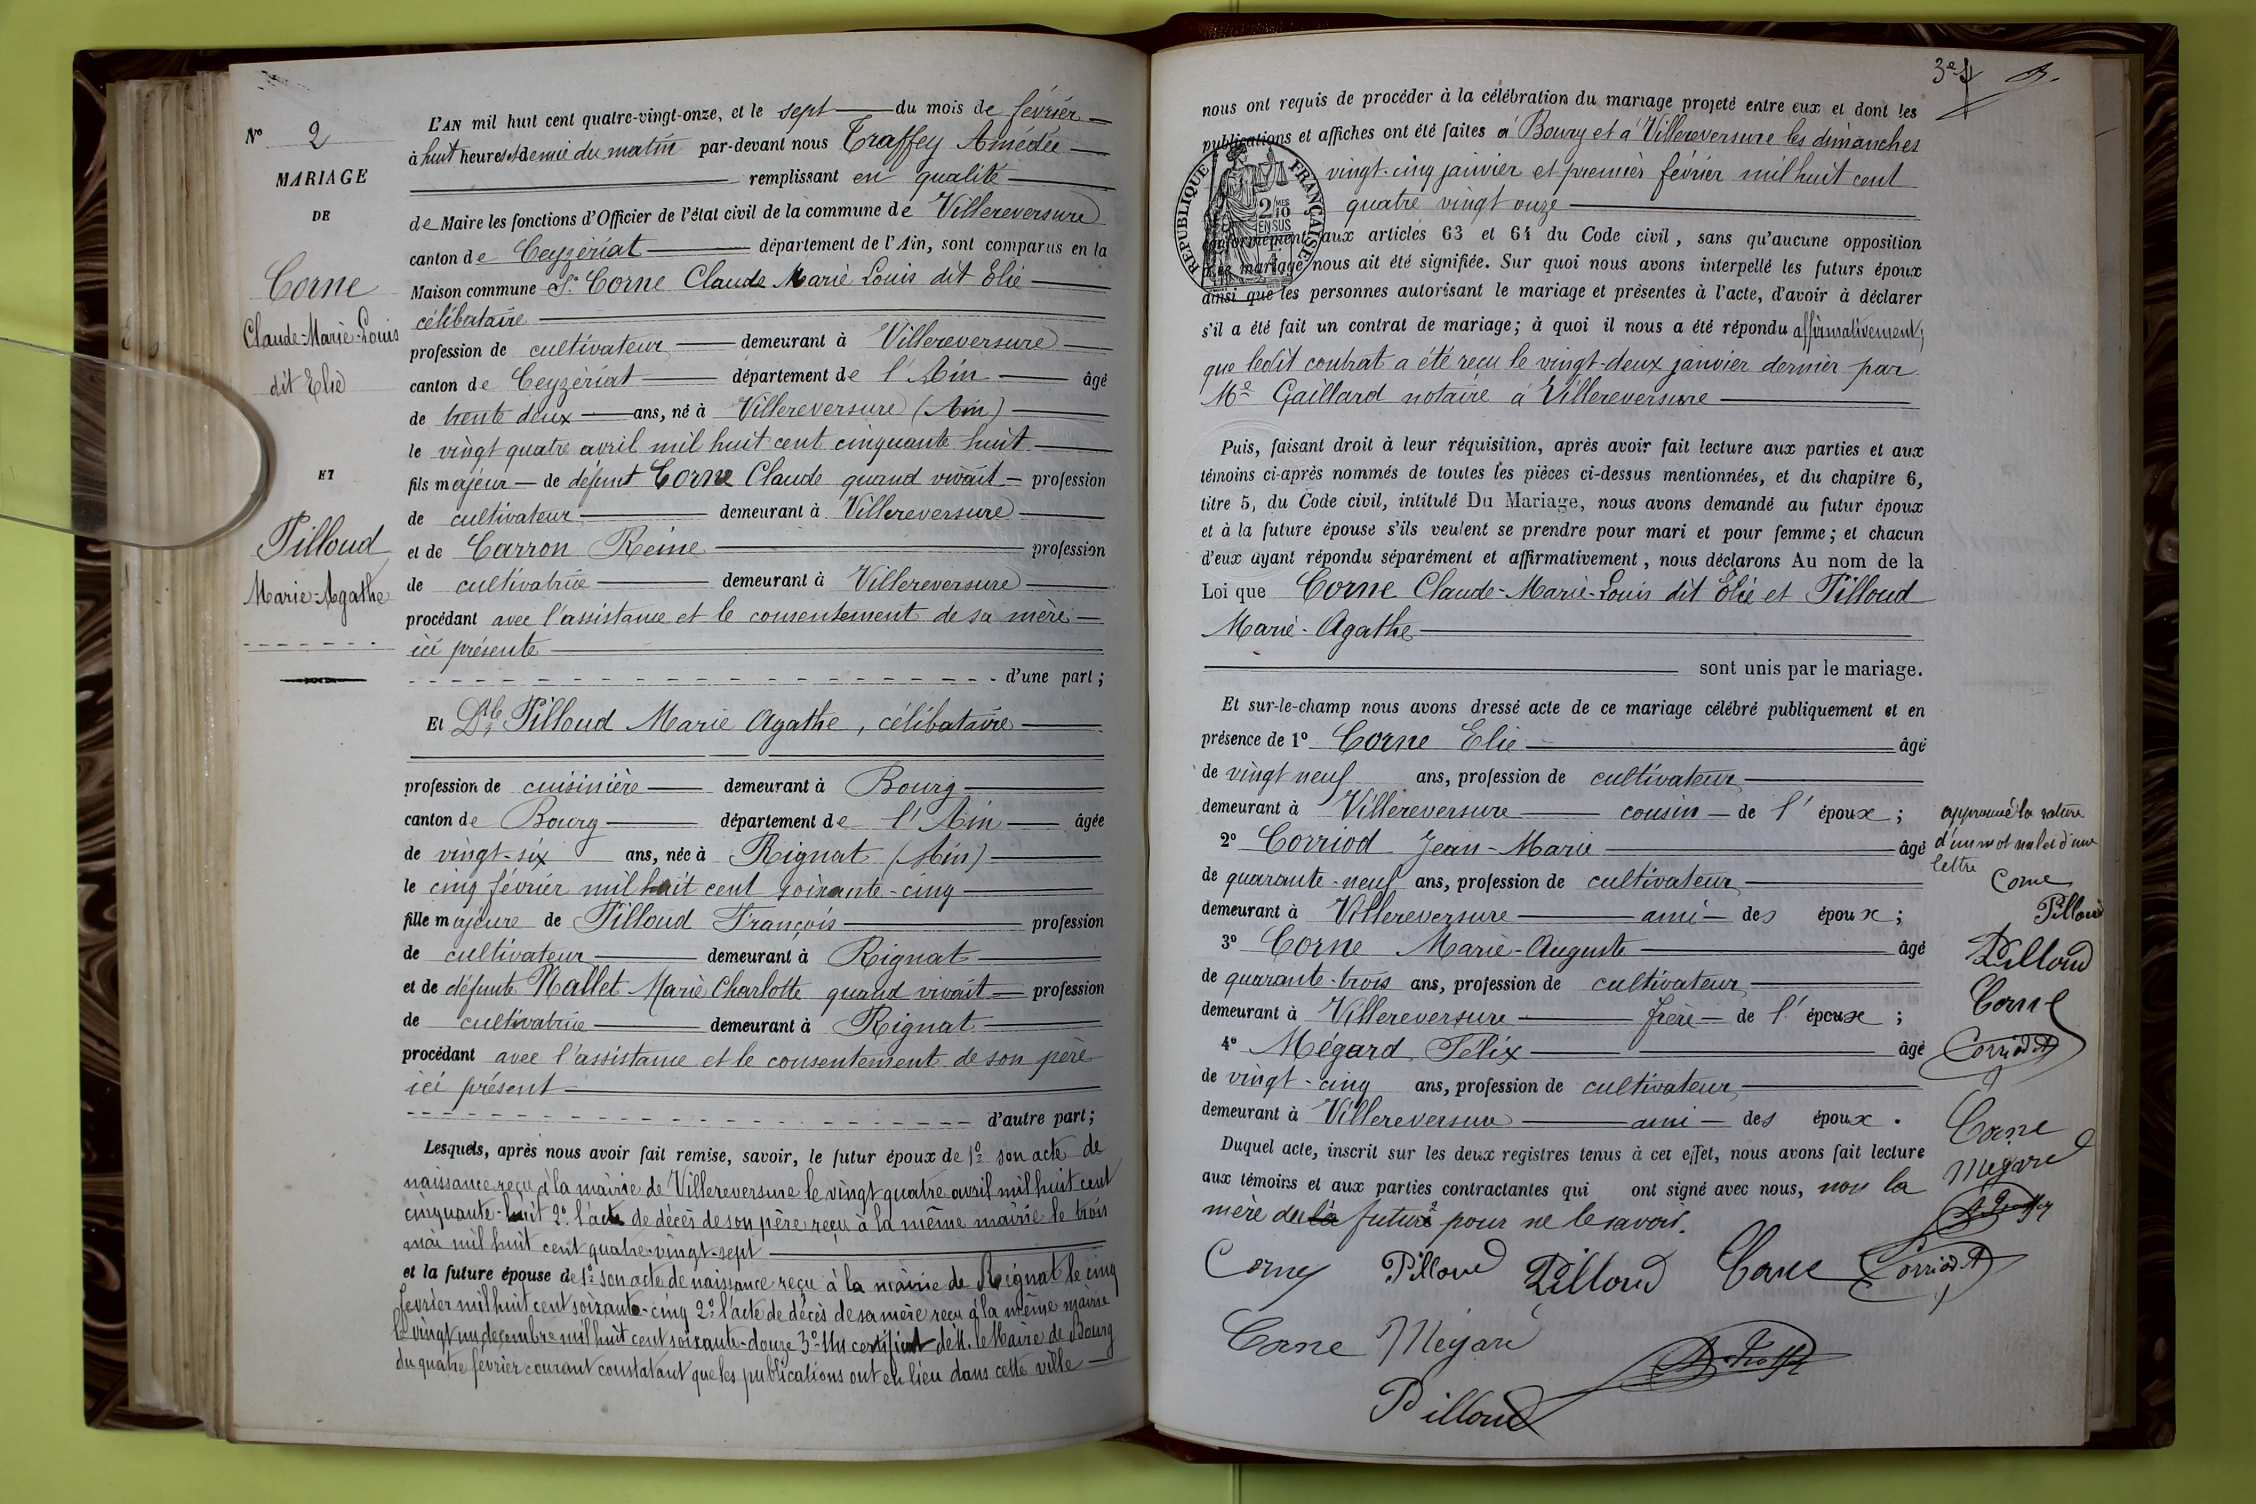 N° 2
MARIAGE
DE
Corne
Claude-Marie-Louis
dit Elie
ET
Pilloud
Marie-Agathe
L'AN mil huit cent quatre-vingt-onze, et le sept du mois de février
à huit heures et demie du matin par-devant nous Traffey Amédée
remplissant en qualité
de Maire les fonctions d'Officier de l'état civil de la commune de Villereversure
canton de Ceyzériat département de l'Ain, sont comparus en la
Maison commune Sr Corne Claude Marie Louis dit Elie
célibataire
profession de cultivateur demeurant à Villereversure
canton de Ceyzériat département de l'Ain âgé
de trente deux ans, né à Villereversure (Ain)
le vingt quatre avril mil huit cent cinquante huit
fils majeur de défunt Corne Claude quand vivait profession
de cultivateur demeurant à Villereversure
et de Carron Reine profession
de cultivatrice demeurant à Villereversure
procédant avec l'assistance et le consentement de sa mère
ici présente
d'une part ;
Et Dlle Pilloud Marie Agathe, célibataire
profession de cuisinière demeurant à Bourg
canton de Bourg département de l'Ain âgée
de vingt-six ans, née à Rignat (Ain)
le cinq février mil huit cent soixante-cinq
fille majeure de Pilloud François profession
de cultivateur demeurant à Rignat
et de défunte Nallet Marie Charlotte quand vivait profession
de cultivatrice demeurant à Rignat
procédant avec l'assistance et le consentement de son père
ici présent
d'autre part ;
Lesquels, après nous avoir fait remise, savoir, le futur époux de 1° son acte de
naissance reçu à la mairie de Villereversure le vingt quatre avril mil huit cent
cinquante-huit 2° l'acte de décès de son père reçu à la même mairie le trois
mai mil huit cent quatre-vingt-sept
et la future épouse de 1° son acte de naissance reçu à la mairie de Rignat le cinq
février mil huit cent soixante-cinq 2° l'acte de décès de sa mère reçu à la même mairie
le vingt un décembre mil huit cent soixante-douze 3° Un certificat de M. le Maire de Bourg
du quatre février courant constatant que les publications ont eu lieu dans cette ville
3e
nous ont requis de procéder à la célébration du mariage projeté entre eux et dont les
publications et affiches ont été faites à Bourg et à Villereversure les dimanches
vingt-cinq janvier et premier février mil huit cent
quatre vingt onze
RÉPUBLIQUE FRANÇAISE
2/10 EN SUS
conformément aux articles 63 et 64 du Code civil, sans qu'aucune opposition
à ce mariage nous ait été signifiée. Sur quoi nous avons interpellé les futurs époux
ainsi que les personnes autorisant le mariage et présentes à l'acte, d'avoir à déclarer
s'il a été fait un contrat de mariage; à quoi il nous a été répondu affirmativement,
que ledit contrat a été reçu le vingt-deux janvier dernier par
Me Gaillard notaire à Villereversure
Puis, faisant droit à leur réquisition, après avoir fait lecture aux parties et aux
témoins ci-après nommés de toutes les pièces ci-dessus mentionnées, et du chapitre 6,
titre 5, du Code civil, intitulé Du Mariage, nous avons demandé au futur époux
et à la future épouse s'ils veulent se prendre pour mari et pour femme ; et chacun
d'eux ayant répondu séparément et affirmativement, nous déclarons Au nom de la
Loi que Corne Claude-Marie-Louis dit Elie et Pilloud
Marie-Agathe
sont unis par le mariage.
Et sur-le-champ nous avons dressé acte de ce mariage célébré publiquement et en
présence de 1° Corne Elie âgé
de vingt neuf ans, profession de cultivateur
demeurant à Villereversure cousin de l'époux ;
2° Corriod Jean-Marie âgé
de quarante-neuf ans, profession de cultivateur
demeurant à Villereversure ami des époux ;
3° Corne Marie-Auguste âgé
de quarante-trois ans, profession de cultivateur
demeurant à Villereversure frère de l'époux ;
4° Mégard Félix âgé
de vingt-cinq ans, profession de cultivateur
demeurant à Villereversure ami des époux.
Duquel acte, inscrit sur les deux registres tenus à cet effet, nous avons fait lecture
aux témoins et aux parties contractantes qui ont signé avec nous, non la
mère du la futur pour ne le savoir.
Corne Pilloud Pilloud Corne Corriod
Corne Mégard
Pilloud
approuvé la rature
d'un mot nul et d'une
lettre
Corne
Pilloud
Pilloud
Corne
Corriod
Corne
Mégard